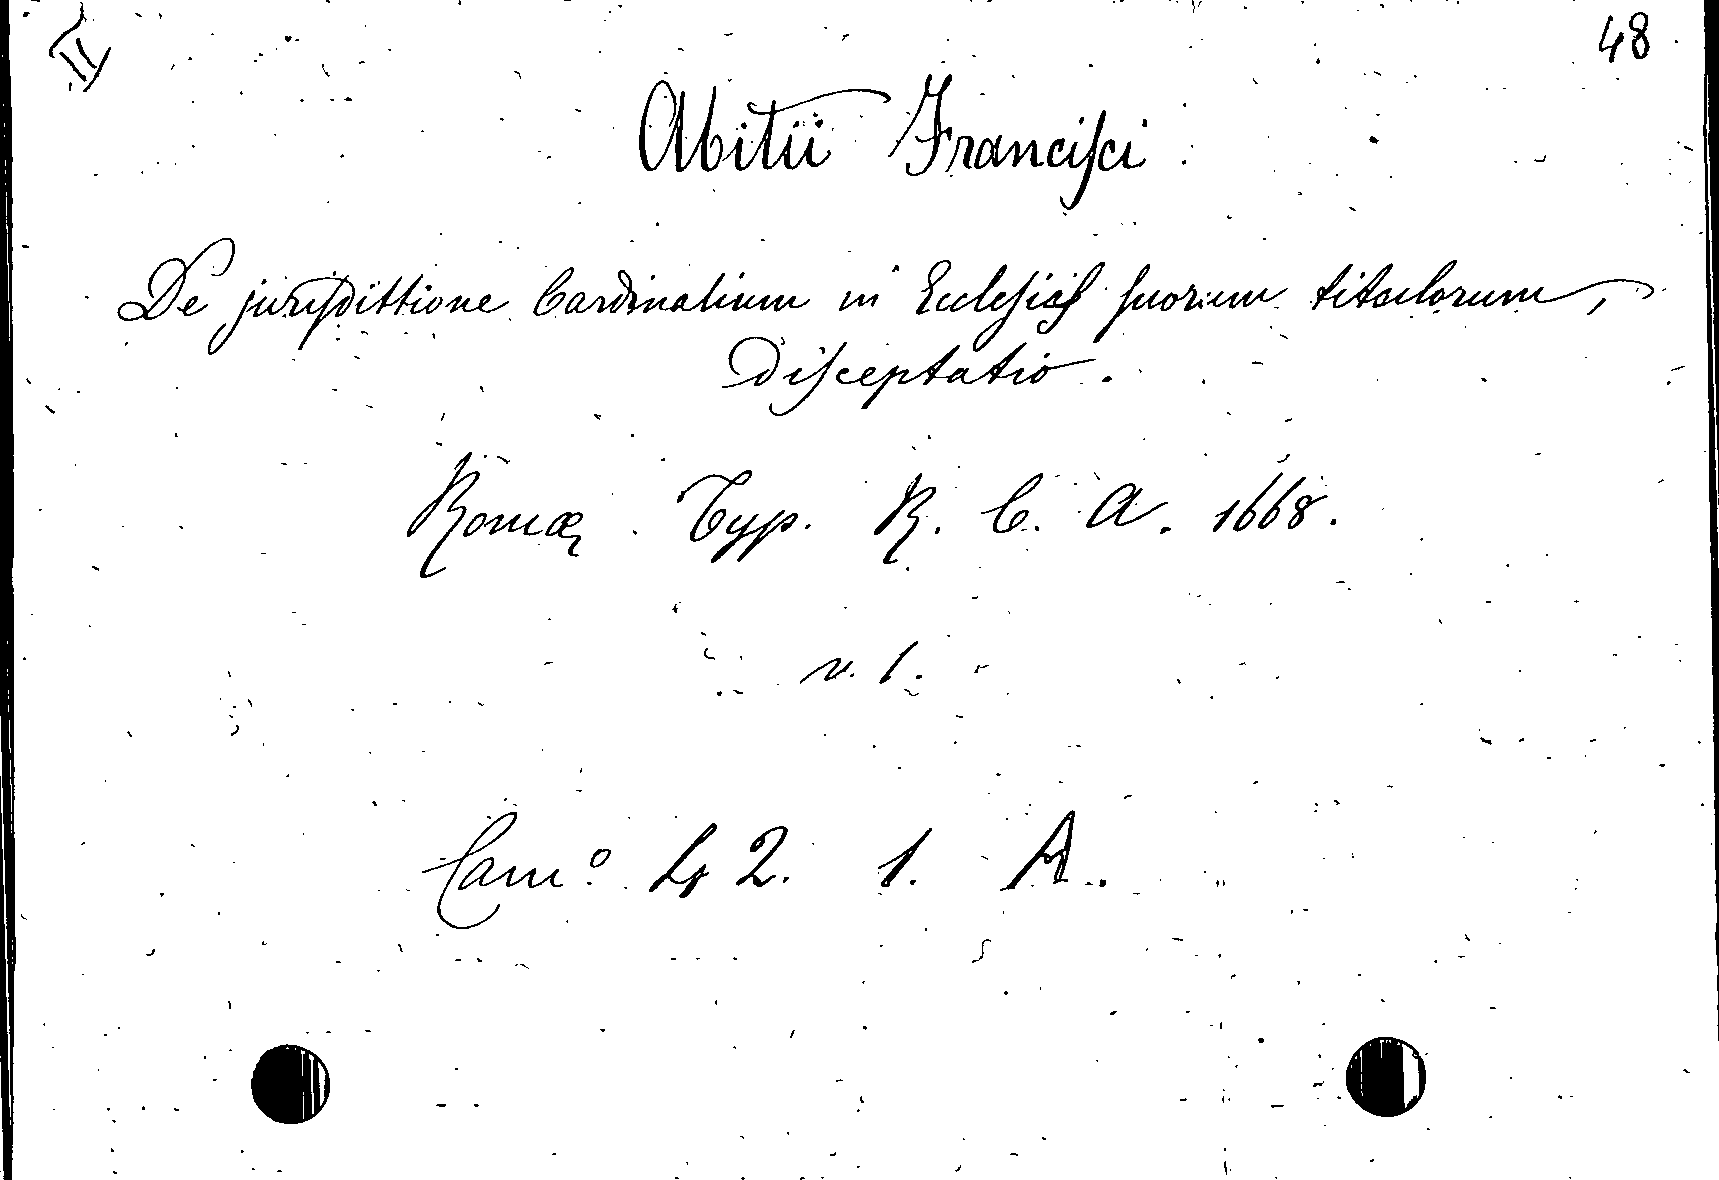 II
48
Abitii Franciſci
De juriſdittione Cardinalium in Eccleſiaſ ſuorum titulorum,
Diſceptatio.
Romæ. Typ. R. C. A. 1668.
v. 1.
Cam.º 42. 1. A.